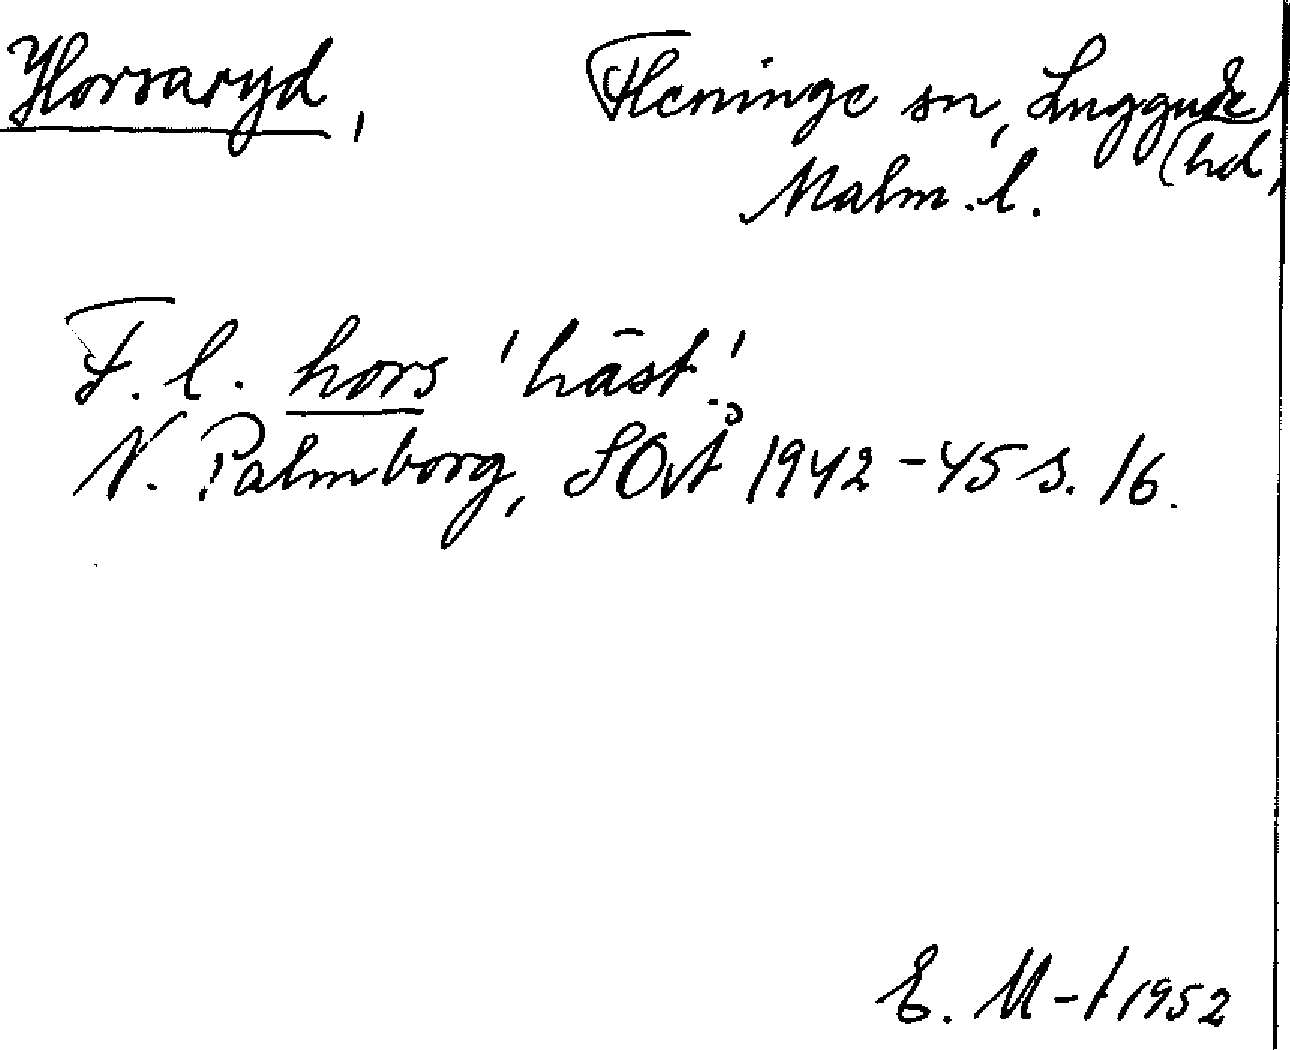 Horsaryd, Fleninge sn, Luggude
(hd,
Malm. l.
F. l. hors 'häst'.
N. Palmborg, SOÅ 1942-45 s. 16.
E. M-t 1952